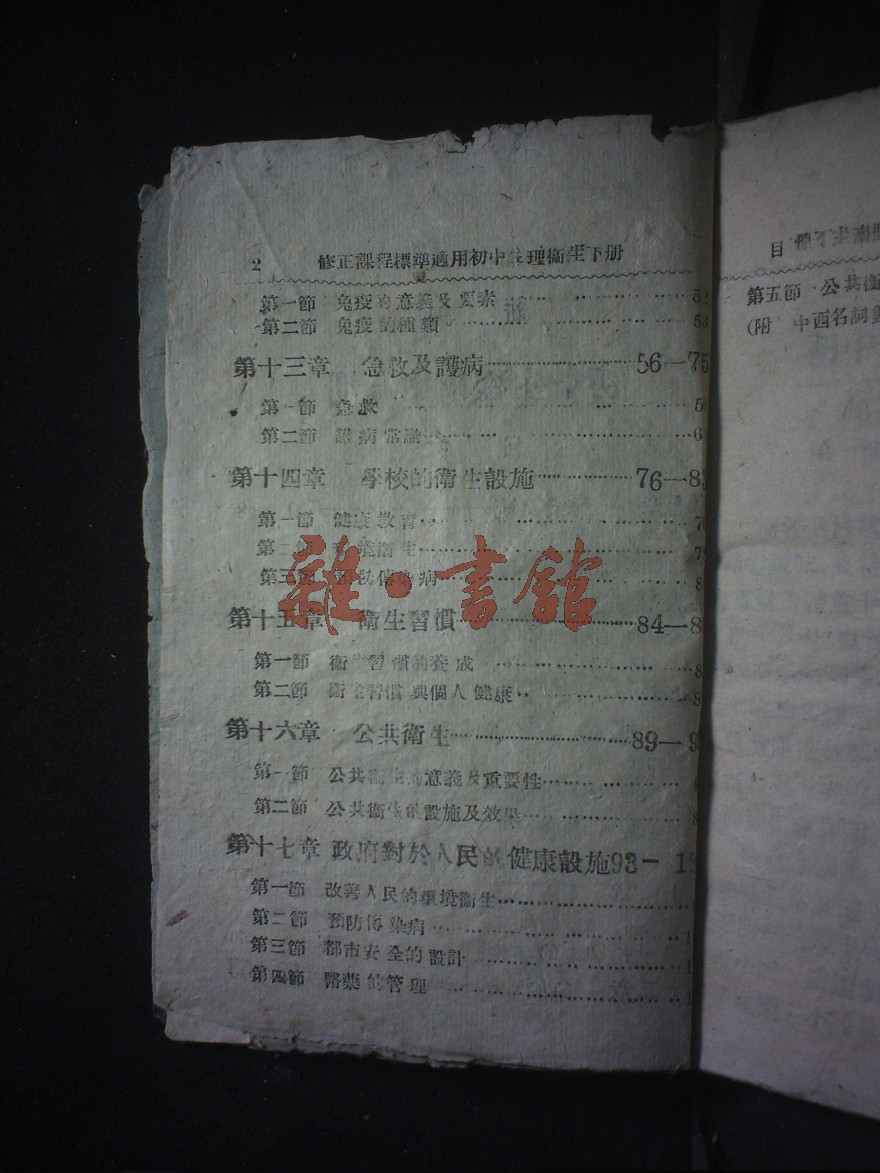 2 修正課程標準適用初中生理衞生下册
第一節 免疫的意義及要素 52
第二節 免疫的種類 53
第十三章 急救及護病 56—75
第一節 急救 5
第二節 護病常識 6
第十四章 學校的衞生設施 76—8
第一節 健康教育 7
第二節 環境衞生 7
第三節 傳染病 8
第十五章 衞生習慣 84—8
第一節 衞生習慣的養成 8
第二節 衞生習慣與個人健康 8
第十六章 公共衞生 89—9
第一節 公共衞生的意義及重要性
第二節 公共衞生的設施及效果
第十七章 政府對於人民的健康設施93—1
第一節 改善人民的環境衞生
第二節 預防傳染病 1
第三節 都市安全的設計 1
第四節 醫藥的管理 1
雜·書館
目
第五節 公共衞
(附 中西名詞